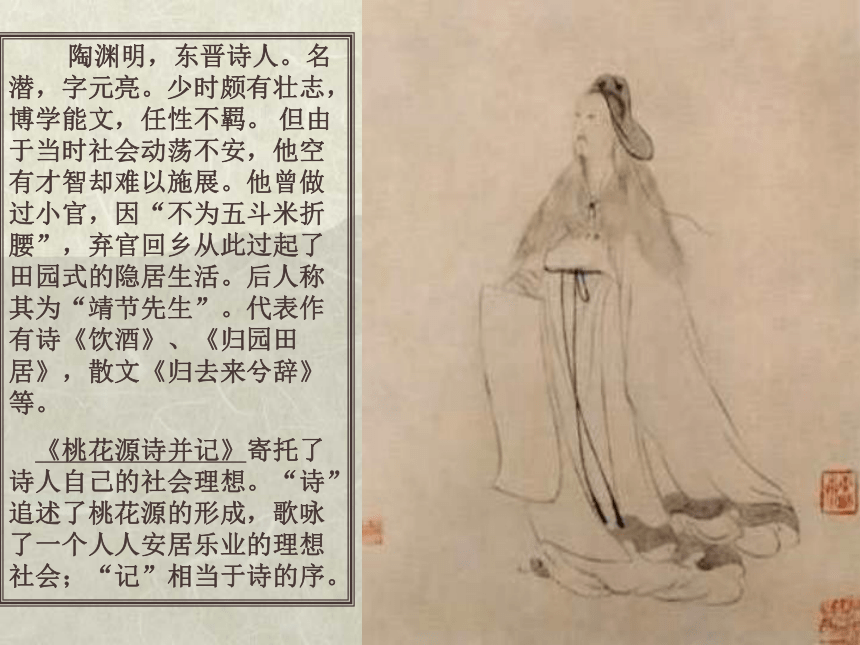 陶渊明，东晋诗人。名
潜，字元亮。少时颇有壮志，
博学能文，任性不羁。 但由
于当时社会动荡不安，他空
有才智却难以施展。他曾做
过小官，因“不为五斗米折
腰”，弃官回乡从此过起了
田园式的隐居生活。后人称
其为“靖节先生”。代表作
有诗《饮酒》、《归园田
居》，散文《归去来兮辞》
等。
《桃花源诗并记》寄托了
诗人自己的社会理想。“诗”
追述了桃花源的形成，歌咏
了一个人人安居乐业的理想
社会；“记”相当于诗的序。